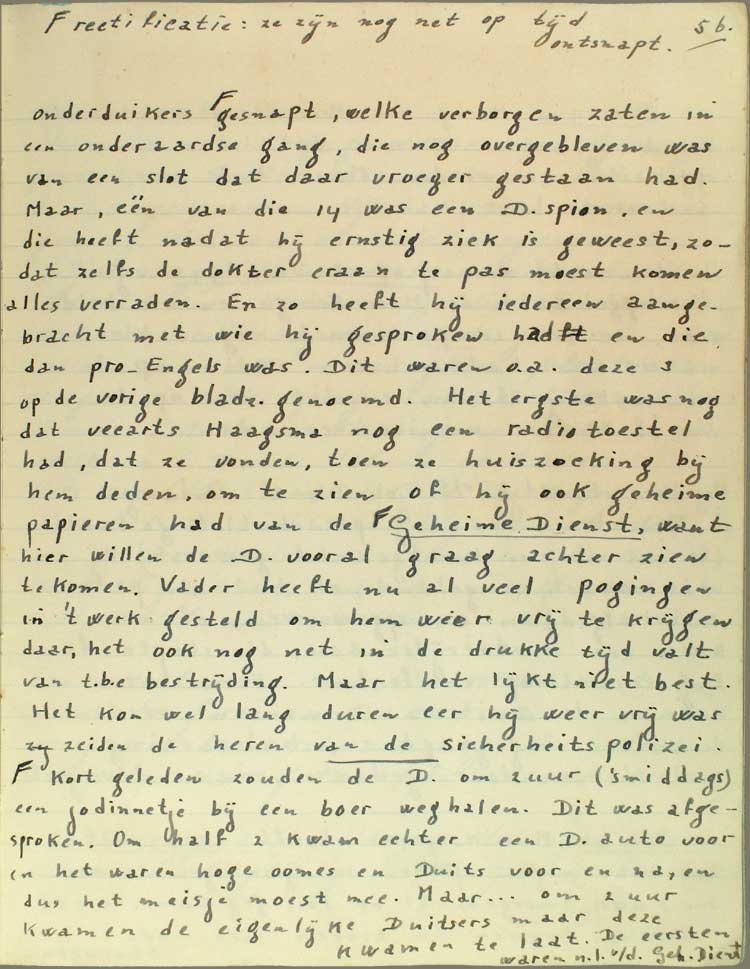 F rectificatie: ze zijn nog net op tijd
ontsnapt.
56.
onderduikers F gesnapt, welke verborgen zaten in
een onderaardse gang, die nog overgebleven was
van een slot dat daar vroeger gestaan had.
Maar, eën van die 14 was een D. spion, en
die heeft nadat hij ernstig ziek is geweest, zo-
dat zelfs de dokter eraan te pas moest komen
alles verraden. En zo heeft hij iedereen aange-
bracht met wie hij gesproken had en die
dan pro-Engels was. Dit waren o.a. deze 3
op de vorige bladz. genoemd. Het ergste was nog
dat veearts Haagsma nog een radiotoestel
had, dat ze vonden, toen ze huiszoeking bij
hem deden, om te zien of hij ook geheime
papieren had van de F Geheime Dienst, want
hier willen de D. vooral graag achter zien
te komen. Vader heeft nu al veel pogingen
in 't werk gesteld om hem weer vrij te krijgen
daar, het ook nog net in de drukke tijd valt
van t.b.c bestrijding. Maar het lijkt niet best.
Het kon wel lang duren eer hij weer vrij was
zeiden de heren van de sicherheitspolizei.
F Kort geleden zouden de D. om 2 uur ('smiddags)
een jodinnetje bij een boer weghalen. Dit was afge-
sproken. Om half 2 kwam echter een D. auto voor
en het waren hoge oomes en Duits voor en na, en
dus het meisje moest mee. Maar... om 2 uur
kwamen de eigenlijke Duitsers maar deze
kwamen te laat. De eersten
waren n.l. v/d. Geh. Dienst